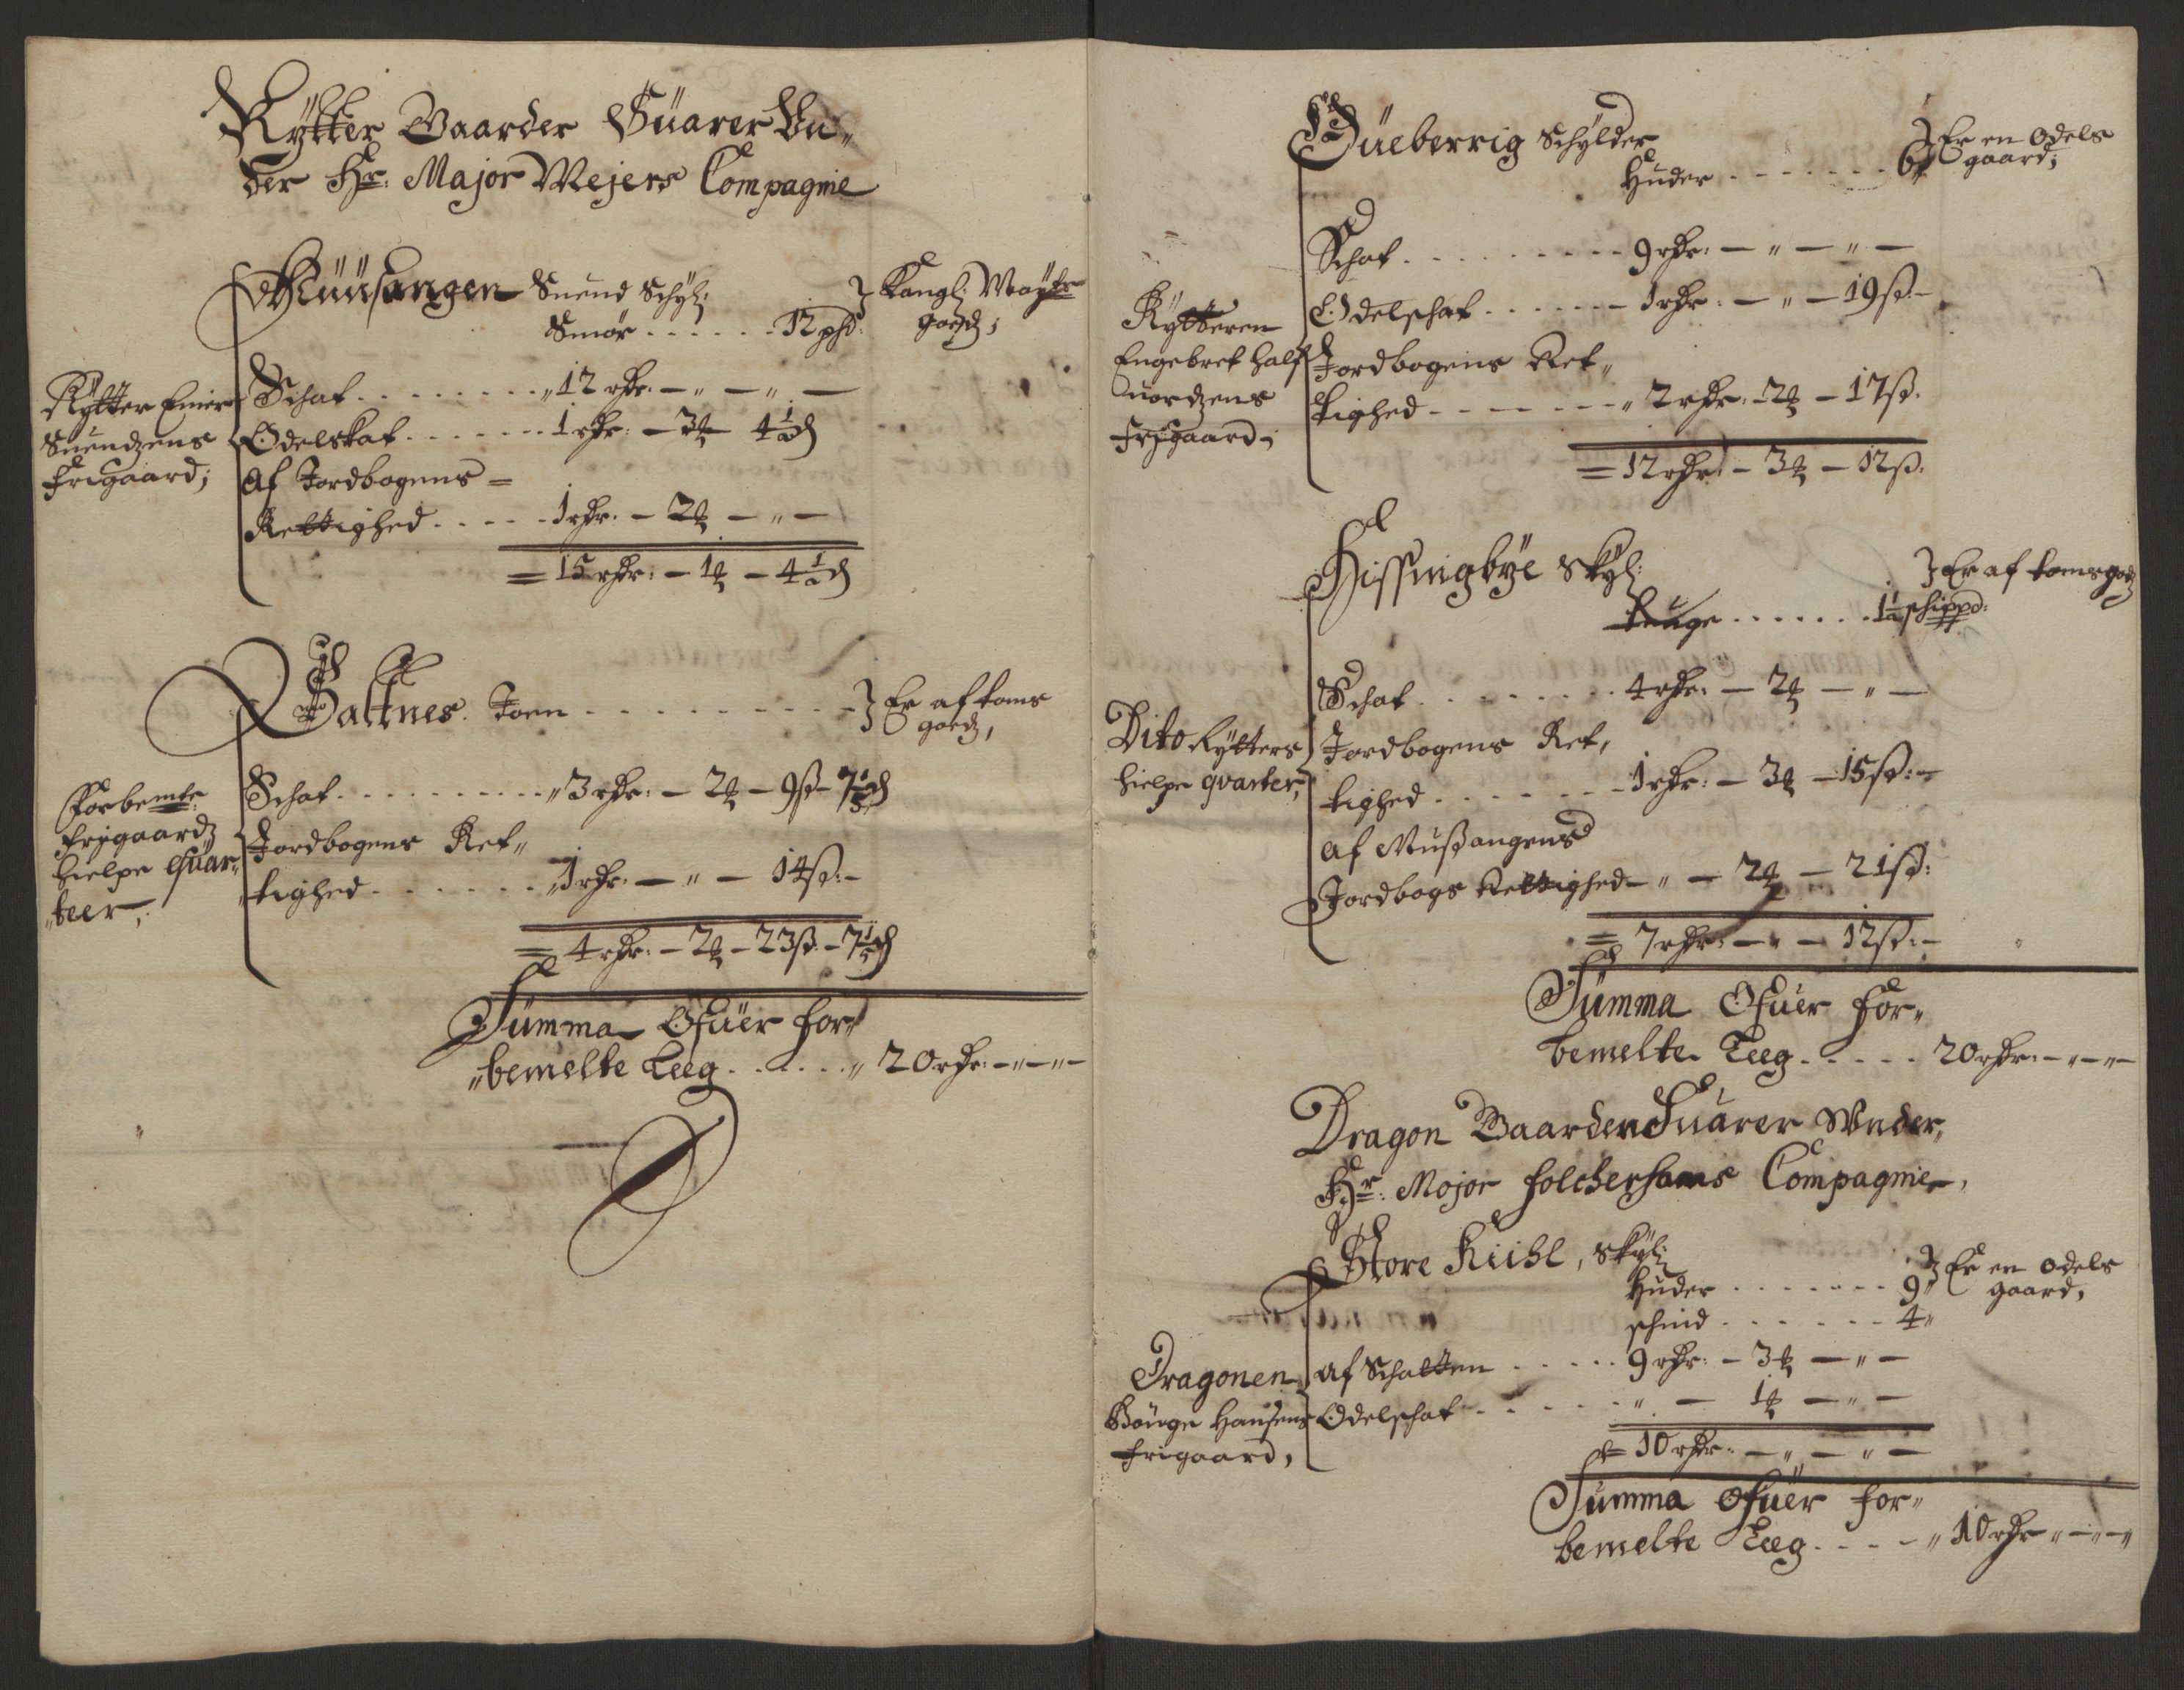 Rÿtter Gaarder Suarer Un„
der Hr: Major Mejers Compagnie
Müüsangen Suend Schÿl:
Smör . . . . . . 12 phd:
Kongl: Maÿtz
goedz;
Rÿtter Einer
Suendzens
Frigaard;
Schat . . . . . . . . „ 12 rdr: — „ — „ —
Odelskat . . . . . . 1 rdr: — 3 ȹ 4½ ₰
Af Jordbogens =
Rettighed . . . . . 1 rdr: — 2 ȹ — „ —
= 15 rdr: — 1 ȹ — 4½ ₰
Battnes. Joen . . . . . . . . .
Er af toms
goedz,
Forbemte
frÿgaardz
hielpe Quar„
„teer,
Schat . . . . . . . . . „ 3 rdr: — 2 ȹ — 9 ß — 7⅕ ₰
Jordbogens Ret„
„tighed . . . . . . „ 1 rdr: — „ — 14 ß: —
= 4 rdr: — 2 ȹ — 23 ß — 7⅕ ₰
Summa Ofuer for„
„bemelte Leeg . . . . . „ 20 rdr: — „ — „ —
Büeberrig Schÿlder
Huder . . . . . . . 6 „
Er en Odels
gaard;
Rÿtteren
Engebret Half
uordzens
Frÿgaard;
Schat . . . . . . . . . 9 rdr: — „ — „ —
Odelschat . . . . . . 1 rdr: — „ — 19 ß: —
Jordbogens Ret„
tighed . . . . . . . „ 2 rdr: — 2 ȹ — 17 ß.
= 12 rdr: — 3 ȹ — 12 ß.
Hissingbÿe Skÿl:
Tunge . . . . . . 1½ schippd:
Er af tomsgodz
Dito Rÿtters
hielpe qvarter,
Schat . . . . . . . . 4 rdr: — 2 ȹ — „ —
Jordbogens Ret„
tighed . . . . . . . 1 rdr: — 3 ȹ — 15 ß: —
Af Mußangens
Jordbogs Rettighed — „ — 2 ȹ — 21 ß:
= 7 rdr: — „ — 12 ß: —
Summa Ofuer for„
bemelte Leeg . . . . . 20 rdr: — „ — „ —
Dragon Gaarder Suarer Under
Hr: Major Folchershams Compagnie,
Store Kiihl, Skÿl:
Huder . . . . . . . 9 „
schind . . . . . . 4 „
Er en odels
gaard,
Dragonen
Bonge Hansens
Frigaard,
Af Schatten . . . . . 9 rdr: — 3 ȹ — „ —
Odelschat . . . . . . „ — 1 ȹ — „ —
= 10 rdr: — „ — „ —
Summa Ofuer for„
bemelte Leeg . . . . „ 10 rdr „ — „ — „